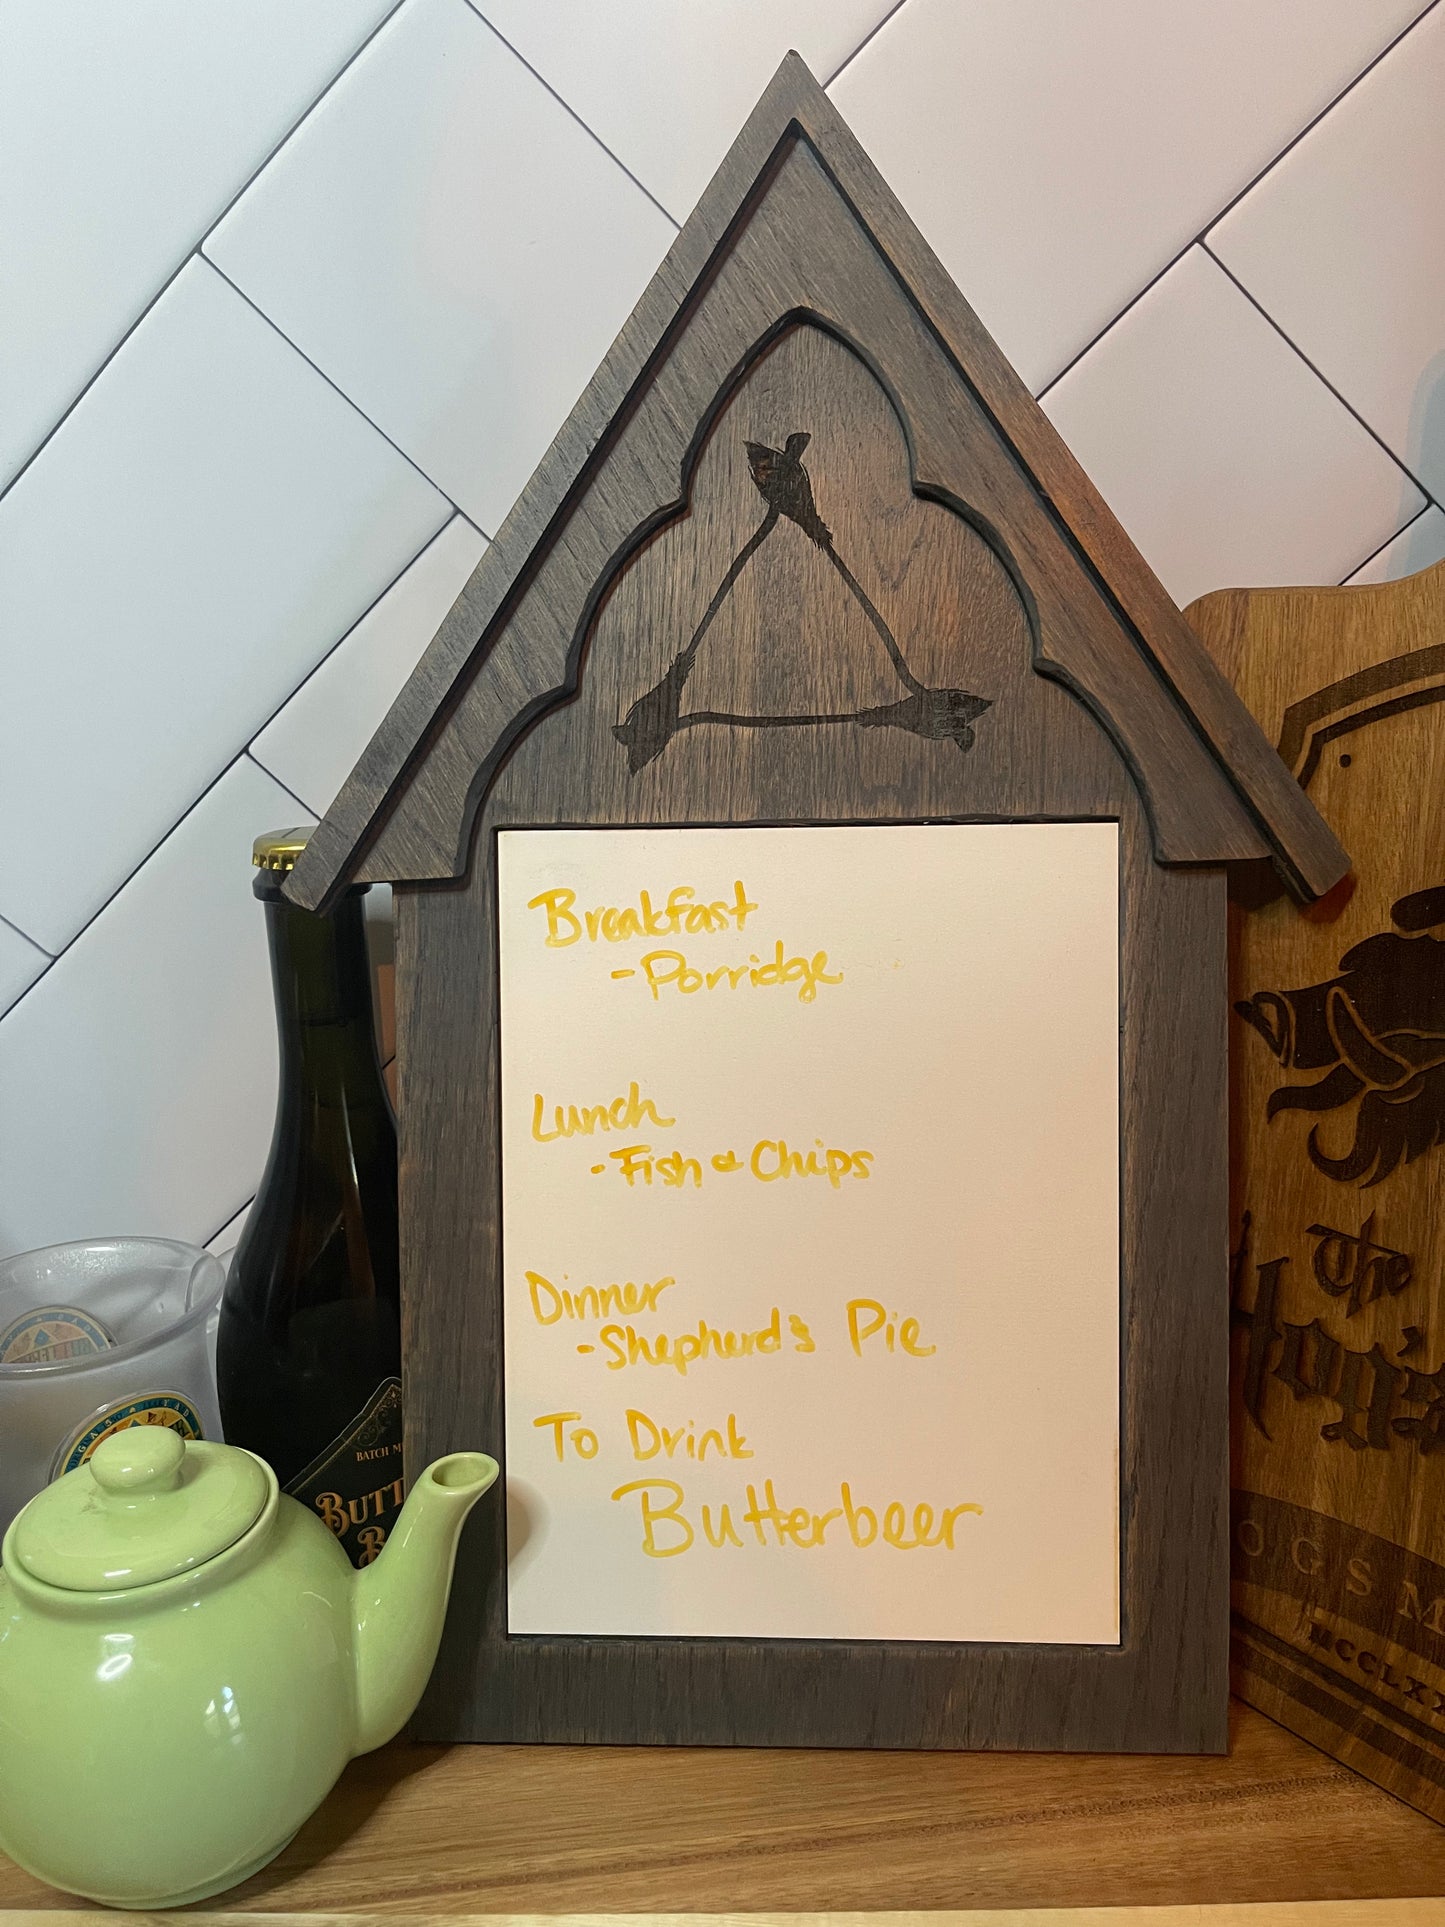 Breakfast
- Porridge
Lunch
- Fish & Chips
Dinner
- Shepherd's Pie
To Drink
Butterbeer
BATCH
BUTT
B
The
Hog's
OGSM
MCCLXX